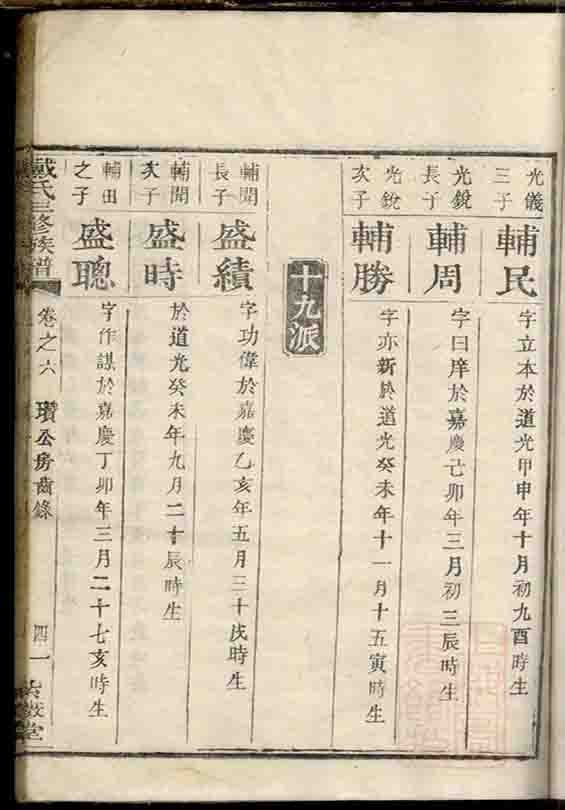 光儀
三子
輔民
字立本於道光甲申年十月初九酉時生
光銳
長子
輔周
字曰庠於嘉慶己卯年三月初三辰時生
光銳
次子
輔勝
字亦新於道光癸未年十一月十五寅時生
十九派
輔聞
長子
盛績
字功偉於嘉慶乙亥年五月三十戌時生
輔聞
次子
盛時
於道光癸未年九月二十辰時生
輔田
之子
盛聰
字作謀於嘉慶丁卯年三月二十七亥時生
戴氏三修族譜
卷之六
瓚公房齒錄
四一